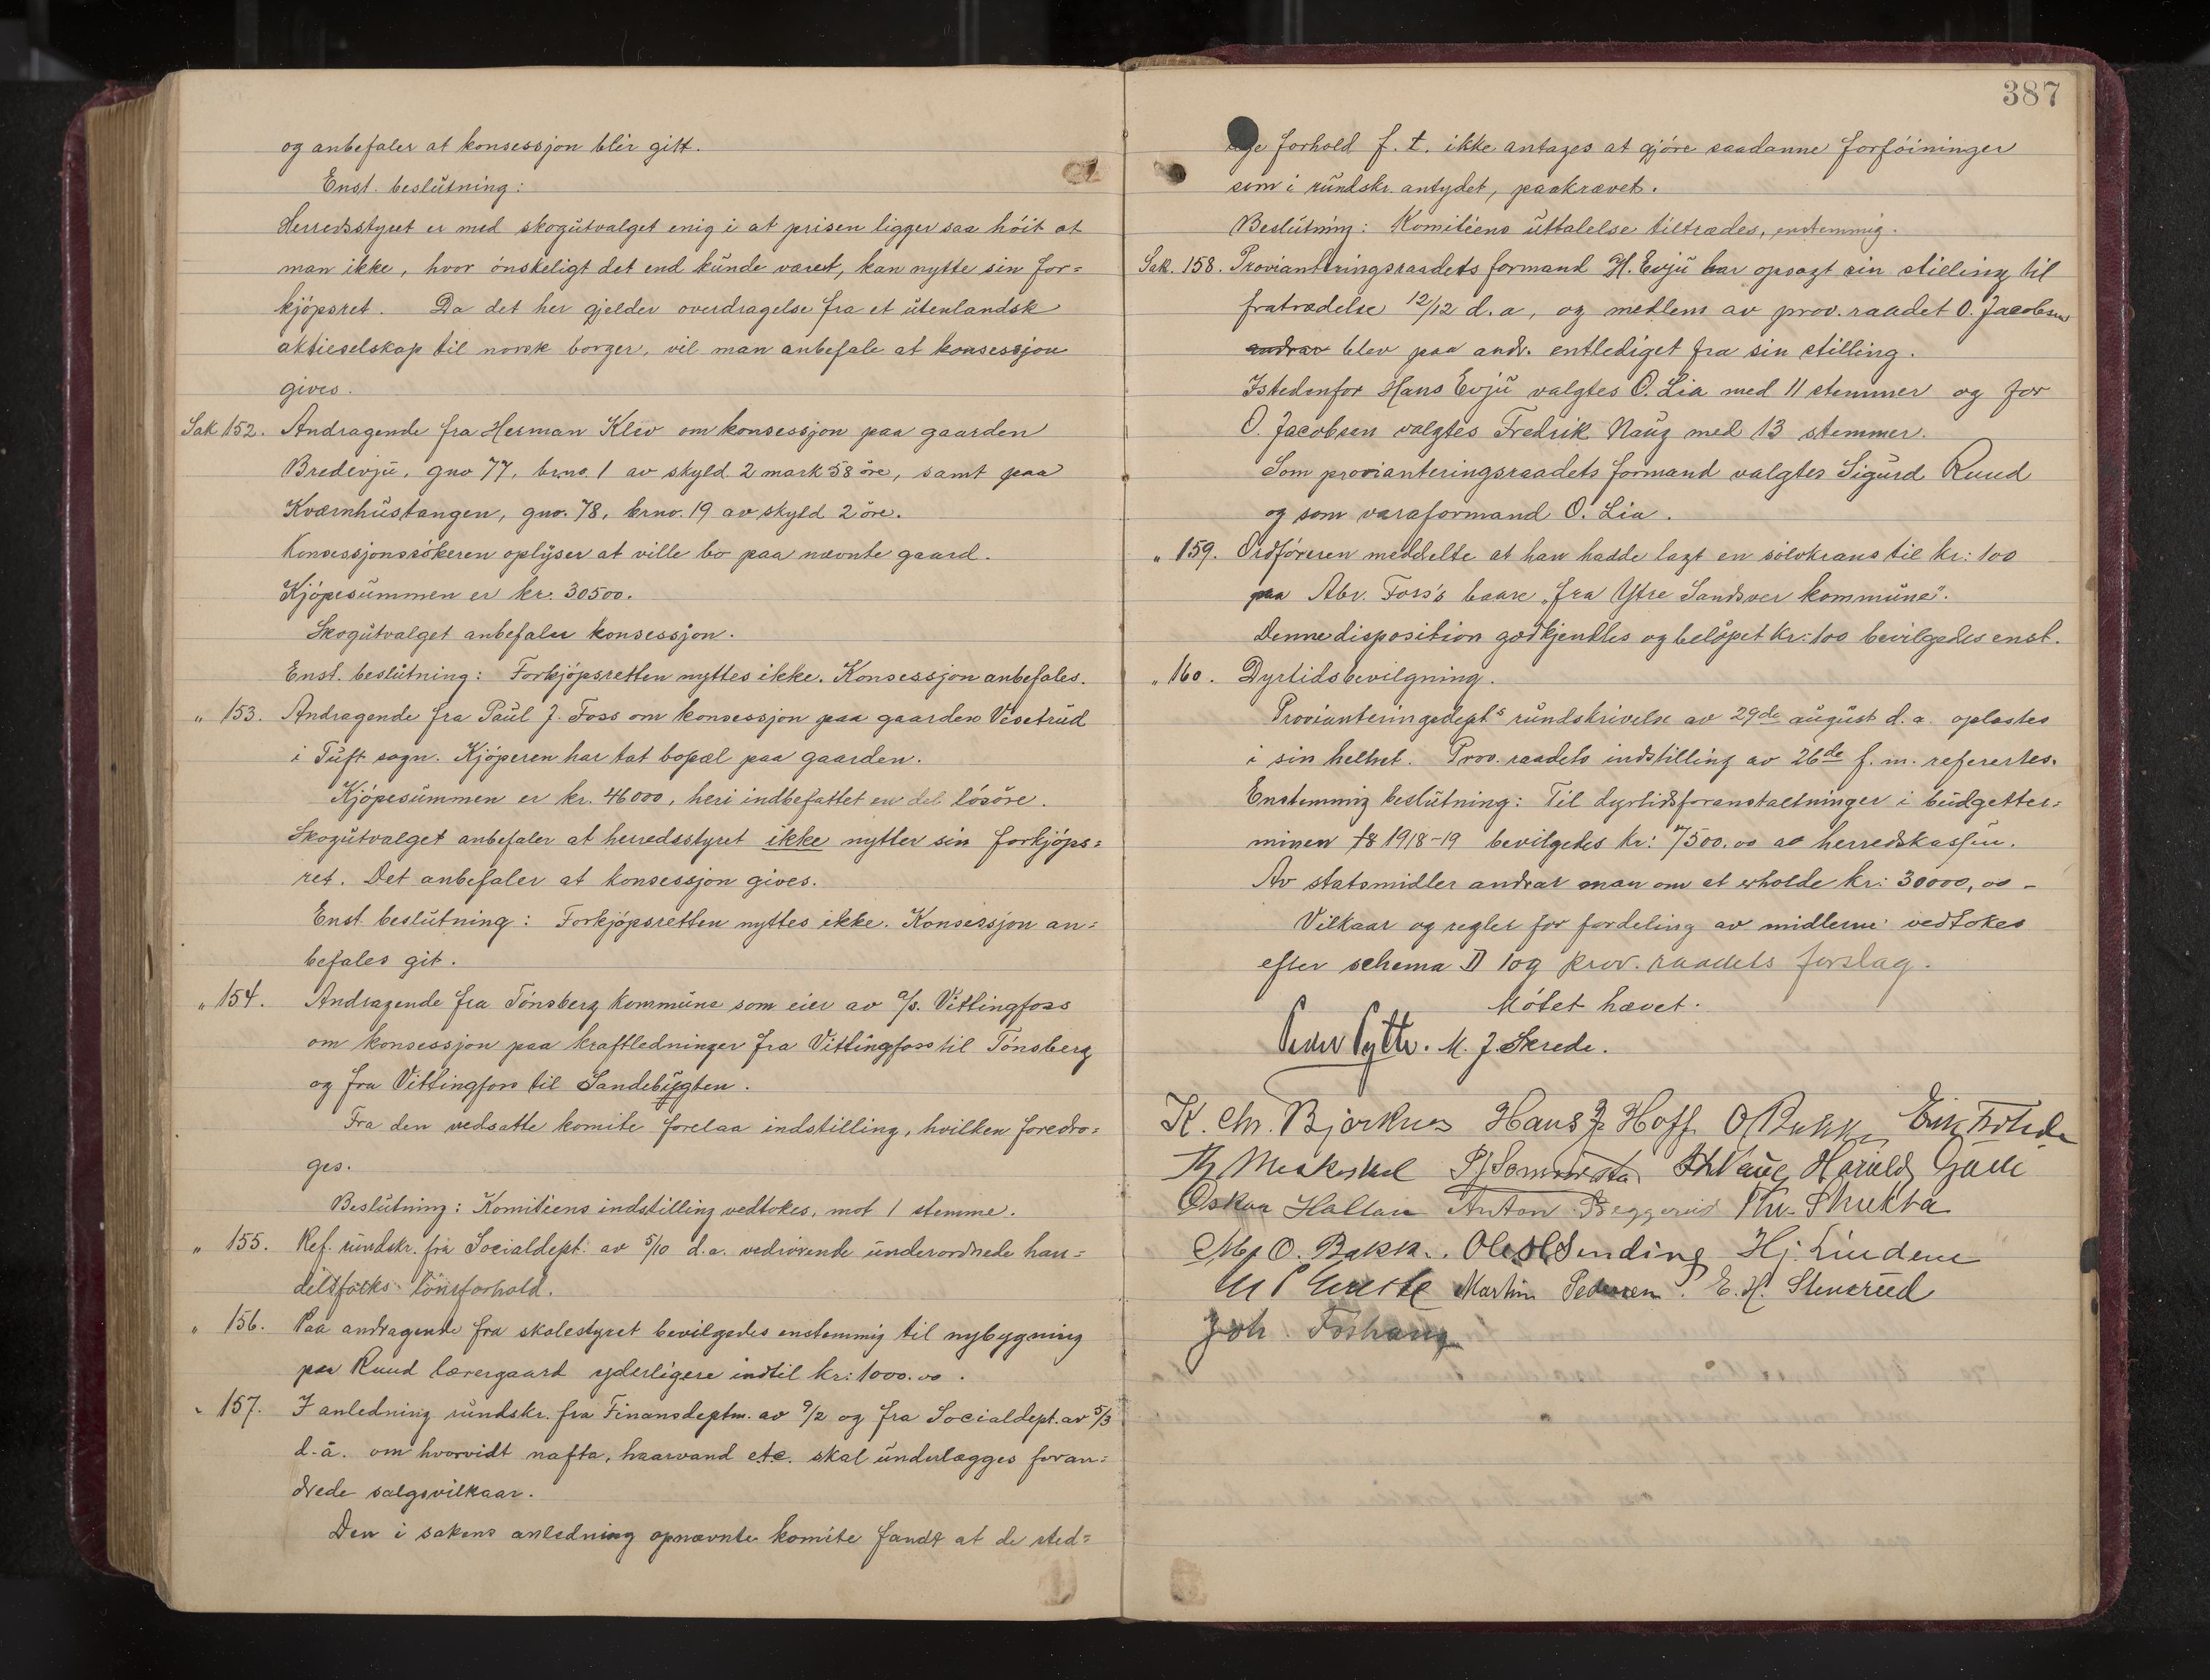 og anbefaler at konsessjon blir gitt.
Enst. beslutning:
Herredsstyret er med skogutvalget enig i at prisen ligger saa höit at
man ikke, hvor önskeligt det end kunde været, kan nytte sin for=
kjöpsret. Da det her gjelder overdragelse fra et utenlandsk
aktieselskap til norsk borger, vil man anbefale at konsessjon
gives.
Sak 152. Andragende fra Herman Kliv om konsessjon paa gaarden
Bredevju, gno 77, brno. 1 av skyld 2 mark 58 öre, samt paa
Kværnhustangen, gno. 78, brno. 19 av skyld 2 öre.
Konsessjonssökeren oplyser at ville bo paa nævnte gaard.
Kjöpesummen er kr. 30500.
Skogutvalget anbefaler konsessjon.
Enst. beslutning: Forkjöpsretten nyttes ikke. Konsessjon anbefales.
" 153. Andragende fra Paul J. Foss om konsessjon paa gaarden Visetrud
i Tuft sogn. Kjöperen har tat bopæl paa gaarden.
Kjöpesummen er kr. 46000, heri indbefattet en del lösöre.
Skogutvalget anbefaler at herredsstyret ikke nytter sin forkjöps=
ret. Det anbefaler at konsessjon gives.
Enst beslutning: Forkjöpsretten nyttes ikke. Konsessjon an=
befales git.
" 154. Andragende fra Tönsberg kommune som eier av a/s. Vittingfoss
om konsessjon paa kraftledninger fra Vittingfoss til Tönsberg
og fra Vittingfoss til Sandebygten.
Fra den nedsatte komite forelaa indstilling, hvilken foredro=
ges.
Beslutning: Komiteens indstilling vedtokes, mot 1 stemme.
" 155. Ref. rundskr. fra Socialdept. av 5/10 d.a. vedrörende underordnede han=
delsfolks lönsforhold.
" 156. Paa andragende fra skolestyret bevilgedes enstemmig til nybygning
paa Ruud lærergaard yderligere indtil kr: 1000.00.
" 157. I anledning rundskr. fra Finansdeptm. av 9/2 og fra Socialdept. av 5/3
d.a. om hvorvidt nafta, haarvand etc. skal underlægges foran=
drede salgsvilkaar.
Den i sakens anledning opnævnte komite fandt at de sted=
387
lige forhold f. t. ikke antages at gjöre saadanne forföininger
som i rundskr. antydet, paakrævet.
Beslutning: Komiteens uttalelse tiltrædes, enstemmig.
Sak. 158. Provianteringsraadets formand H. Evju har opsagt sin stilling til
fratrædelse 12/12 d.a, og medlem av prov. raadet O. Jacobsen
andrar blev paa andr. entlediget fra sin stilling.
Istedenfor Hans Evju valgtes O. Lia med 11 stemmer og for
O. Jacobsen valgtes Fredrik Haug med 13 stemmer.
Som provianteringsraadets formand valgtes Sigurd Ruud
og som varaformand O. Lia.
" 159. Ordföreren meddelte at han hadde lagt en sölvkrans til kr: 100
paa Abr. Foss's baare "fra Ytre Sandsver kommune".
Denne disposition godkjendtes og belöpet kr: 100 bevilgedes enst.
" 160. Dyrtidsbevilgning.
Provianteringsdepts rundskrivelse av 29de august d.a. oplæstes
i sin helhet. Prov. raadets indstilling av 26de f. m. refereres.
Enstemmig beslutning: Til dyrtidsforanstaltninger i budgetter=
minen 18 1918-19 bevilgedes kr: 7500.00 av herredskassen.
Av statsmidler andrar man om at erholde kr: 30000,00 -
Vilkaar og regler for fordeling av midlerne vedtokes
efter schema II og prov. raadets forslag.
Mötet hævet.
Peder Pytte. M. J. Skrede.
K. Chr. Bjerknes Hans J. Hoff O Bakke
Harald
Oskar Hallan Anton
O. Bakk. Ole H Sending Hj. Lindem
Martin Pedersen. E. H. Stensrud
Joh. Foshaug